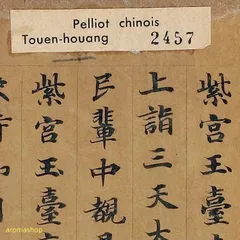 Pelliot chinois
Touen-houang 2457
紫宮玉臺
上詣三天
輩中覩
紫宮玉臺
aromashop